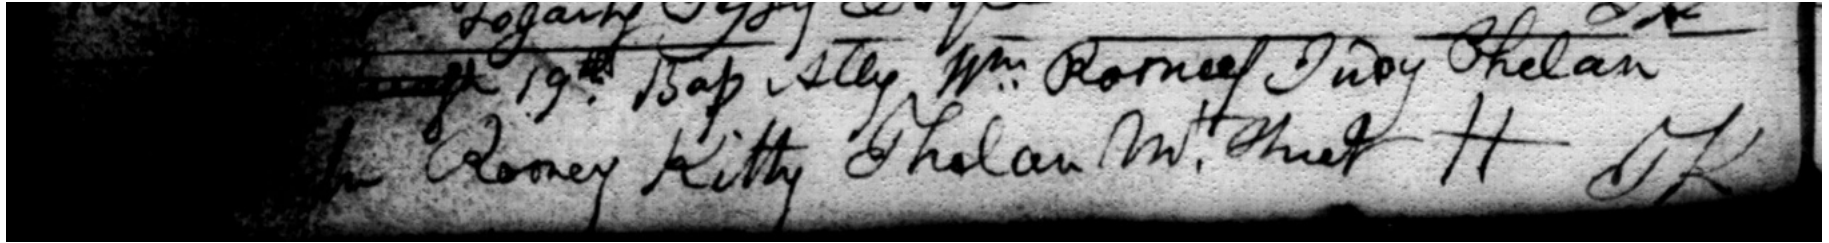 Fogarty
19th. Bap Ally Wm. Rooney Judy Phelan
Jn Rooney Kitty Phelan Mt. Street H TK